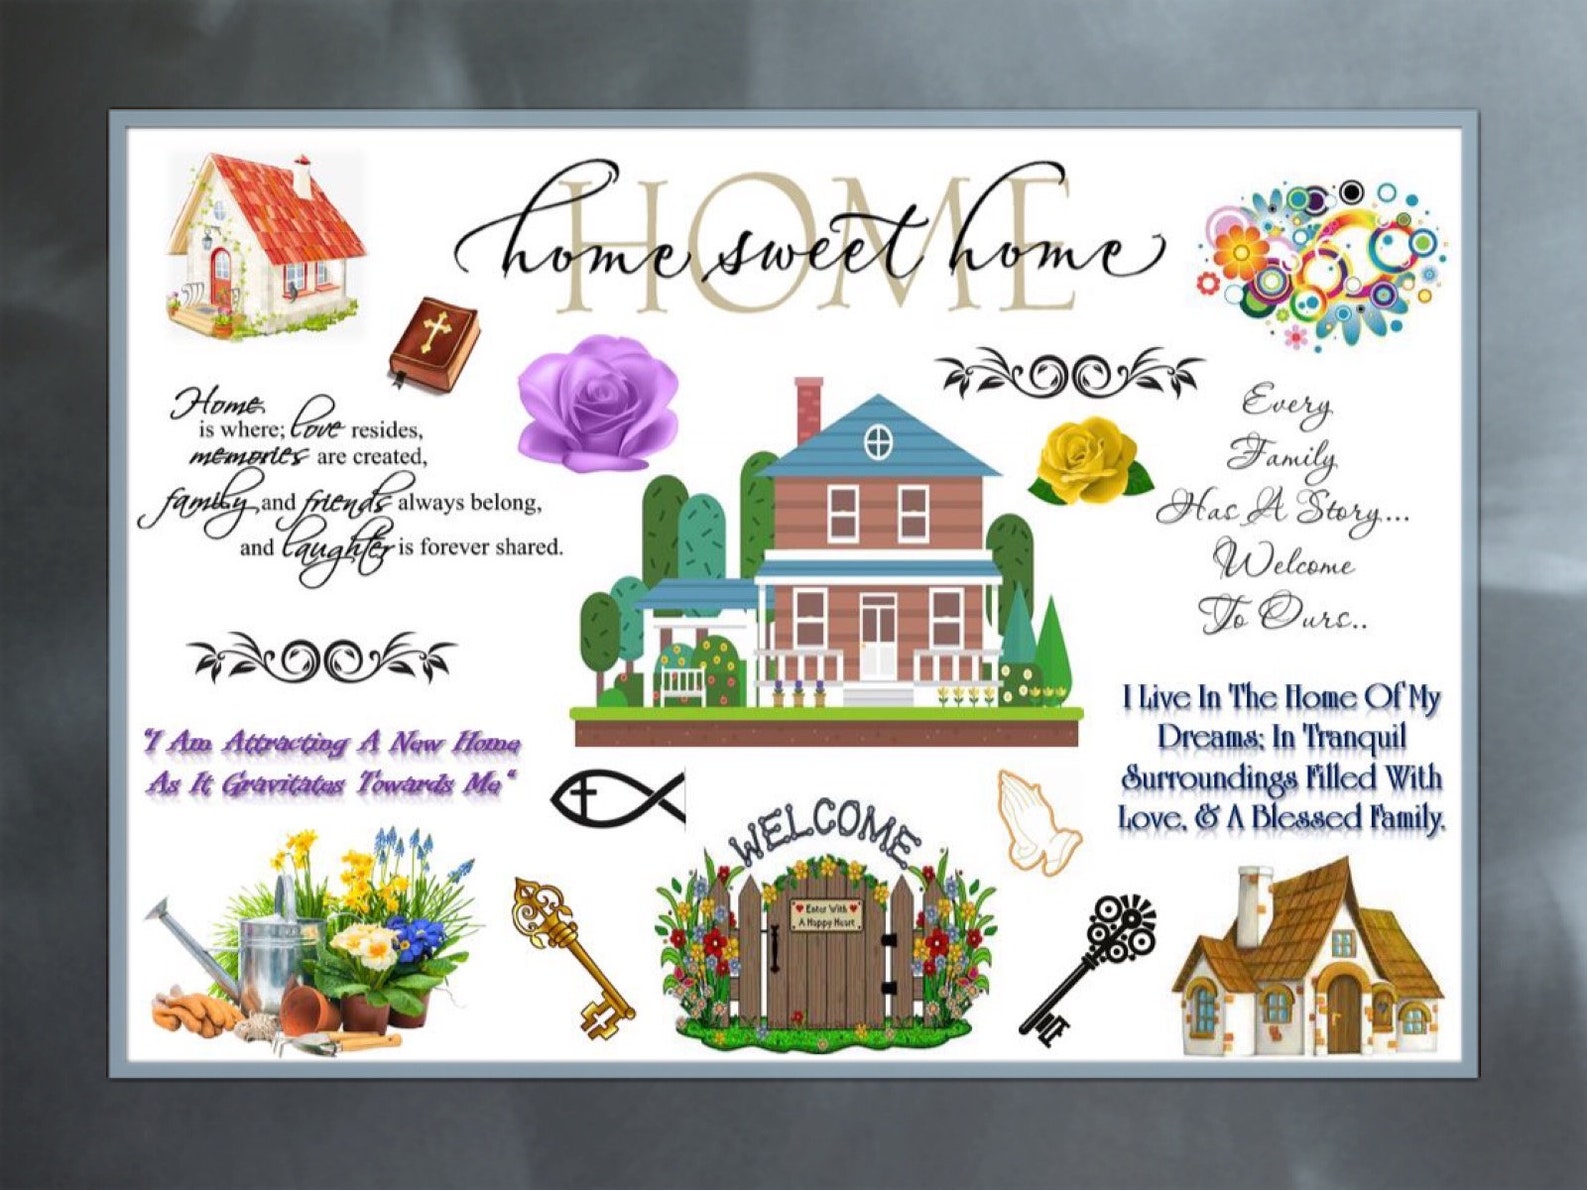 HOME
home sweet home
Home
is where; love resides,
memories are created,
family and friends always belong,
and laughter is forever shared.
Every
Family
Has A Story...
Welcome
To Ours..
"I Am Attracting A New Home
As It Gravitates Towards Me"
I Live In The Home Of My
Dreams; In Tranquil
Surroundings Filled With
Love, & A Blessed Family.
WELCOME
Enter With
A Happy Heart